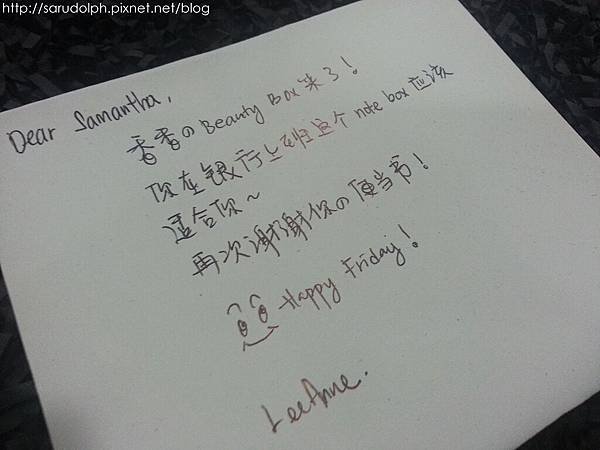 http://sarudolph.pixnet.net/blog
Dear Samantha,
香香の Beauty Box 来了!
你在银行上班这个 note box 应该
适合你~
再次谢谢你の便当书!
Happy Friday!
LeeAnne.